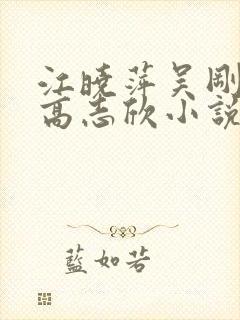 江曉萍吴剛
高志欣小說
藍如若